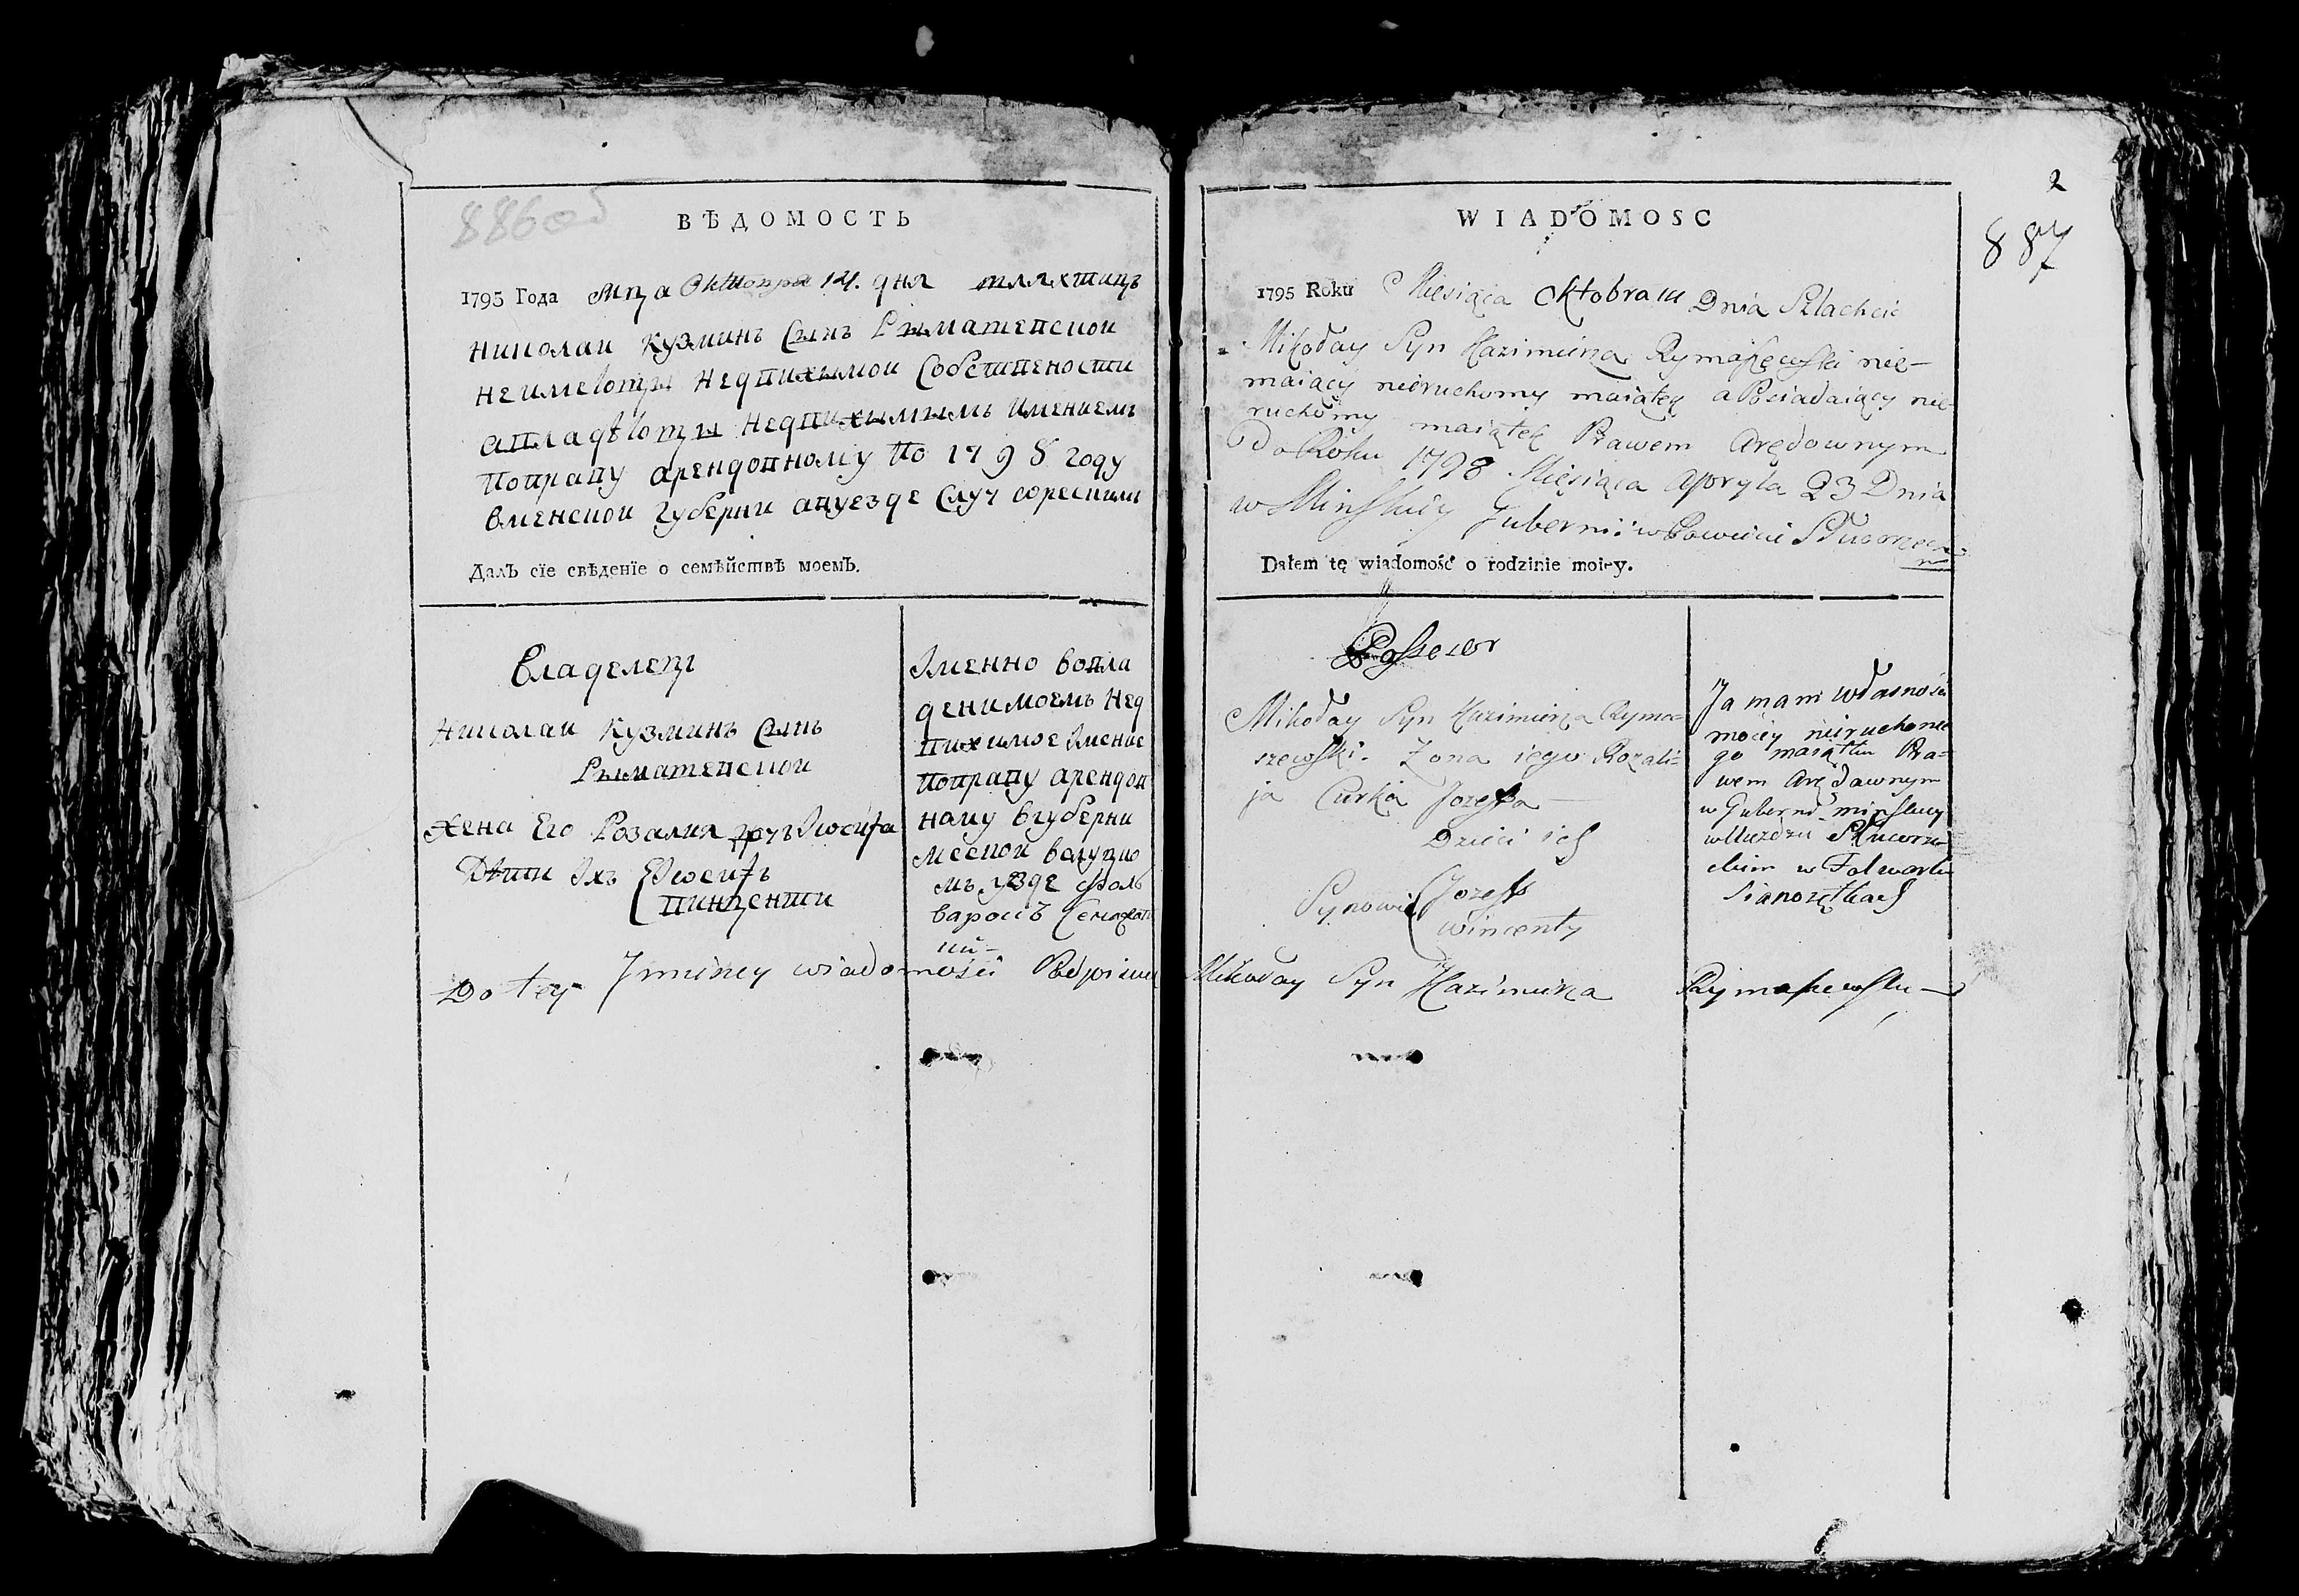 886об
ВѢДОМОСТЬ
1795 Года Мца Октоπря 14. дня шляхтицъ
Николаи Кузминъ Сынъ Рымашевскои
неимеющы недвижымои Собствености
авладѣющы недвижымымъ имениемъ
поправу арендовному по 1798 году
вменскои губерни ауезде Случ
ДалЪ сїе свѣденїе о семѣйствѣ моемЪ.
Владелецъ
Николаи Кузминъ Сынъ
Рымашевскои
жена Его Розалия дочъ Иосифа
Дѣти Ихъ Иосифъ
винценти
Именно вовла
дени моемъ нед
вижимое Имение
поправу арендов
ному вгуберни
мъ узде фоль
До tey Jminey wiadomości Podpisuię
2
887
WIADOMOSC
1795 Roku Miesiąca Oktobra 14 Dnia Szlachcic
Mikołay Syn Kazimierza Rymaszewski nie-
maiący nieruchomy maiątek a Posiadaiący nie-
ruchomy maiątek Prawem Arędownym
do Roku 1798 Miesiąca Apryla 23 Dnia
w Minskiey Gubernii w Powiecie
Dałem tę wiadomość o rodzinie moiey.
Possesor
Mikołay Syn Kazimierza Ryma=
szewski. Zona iego Rozali=
ja Curka Jozefa
Dzieci ich
Synowie Jozeff
wincenty
Ja mam własności
moiey nieruchome
go maiątku Pra=
wem Arędawnym
w Guberni minskiey
w Uezdzie Słuczew
skim w Folwarku
Sianozętkach
Mikołay Syn Kazimierza Rymaszewski